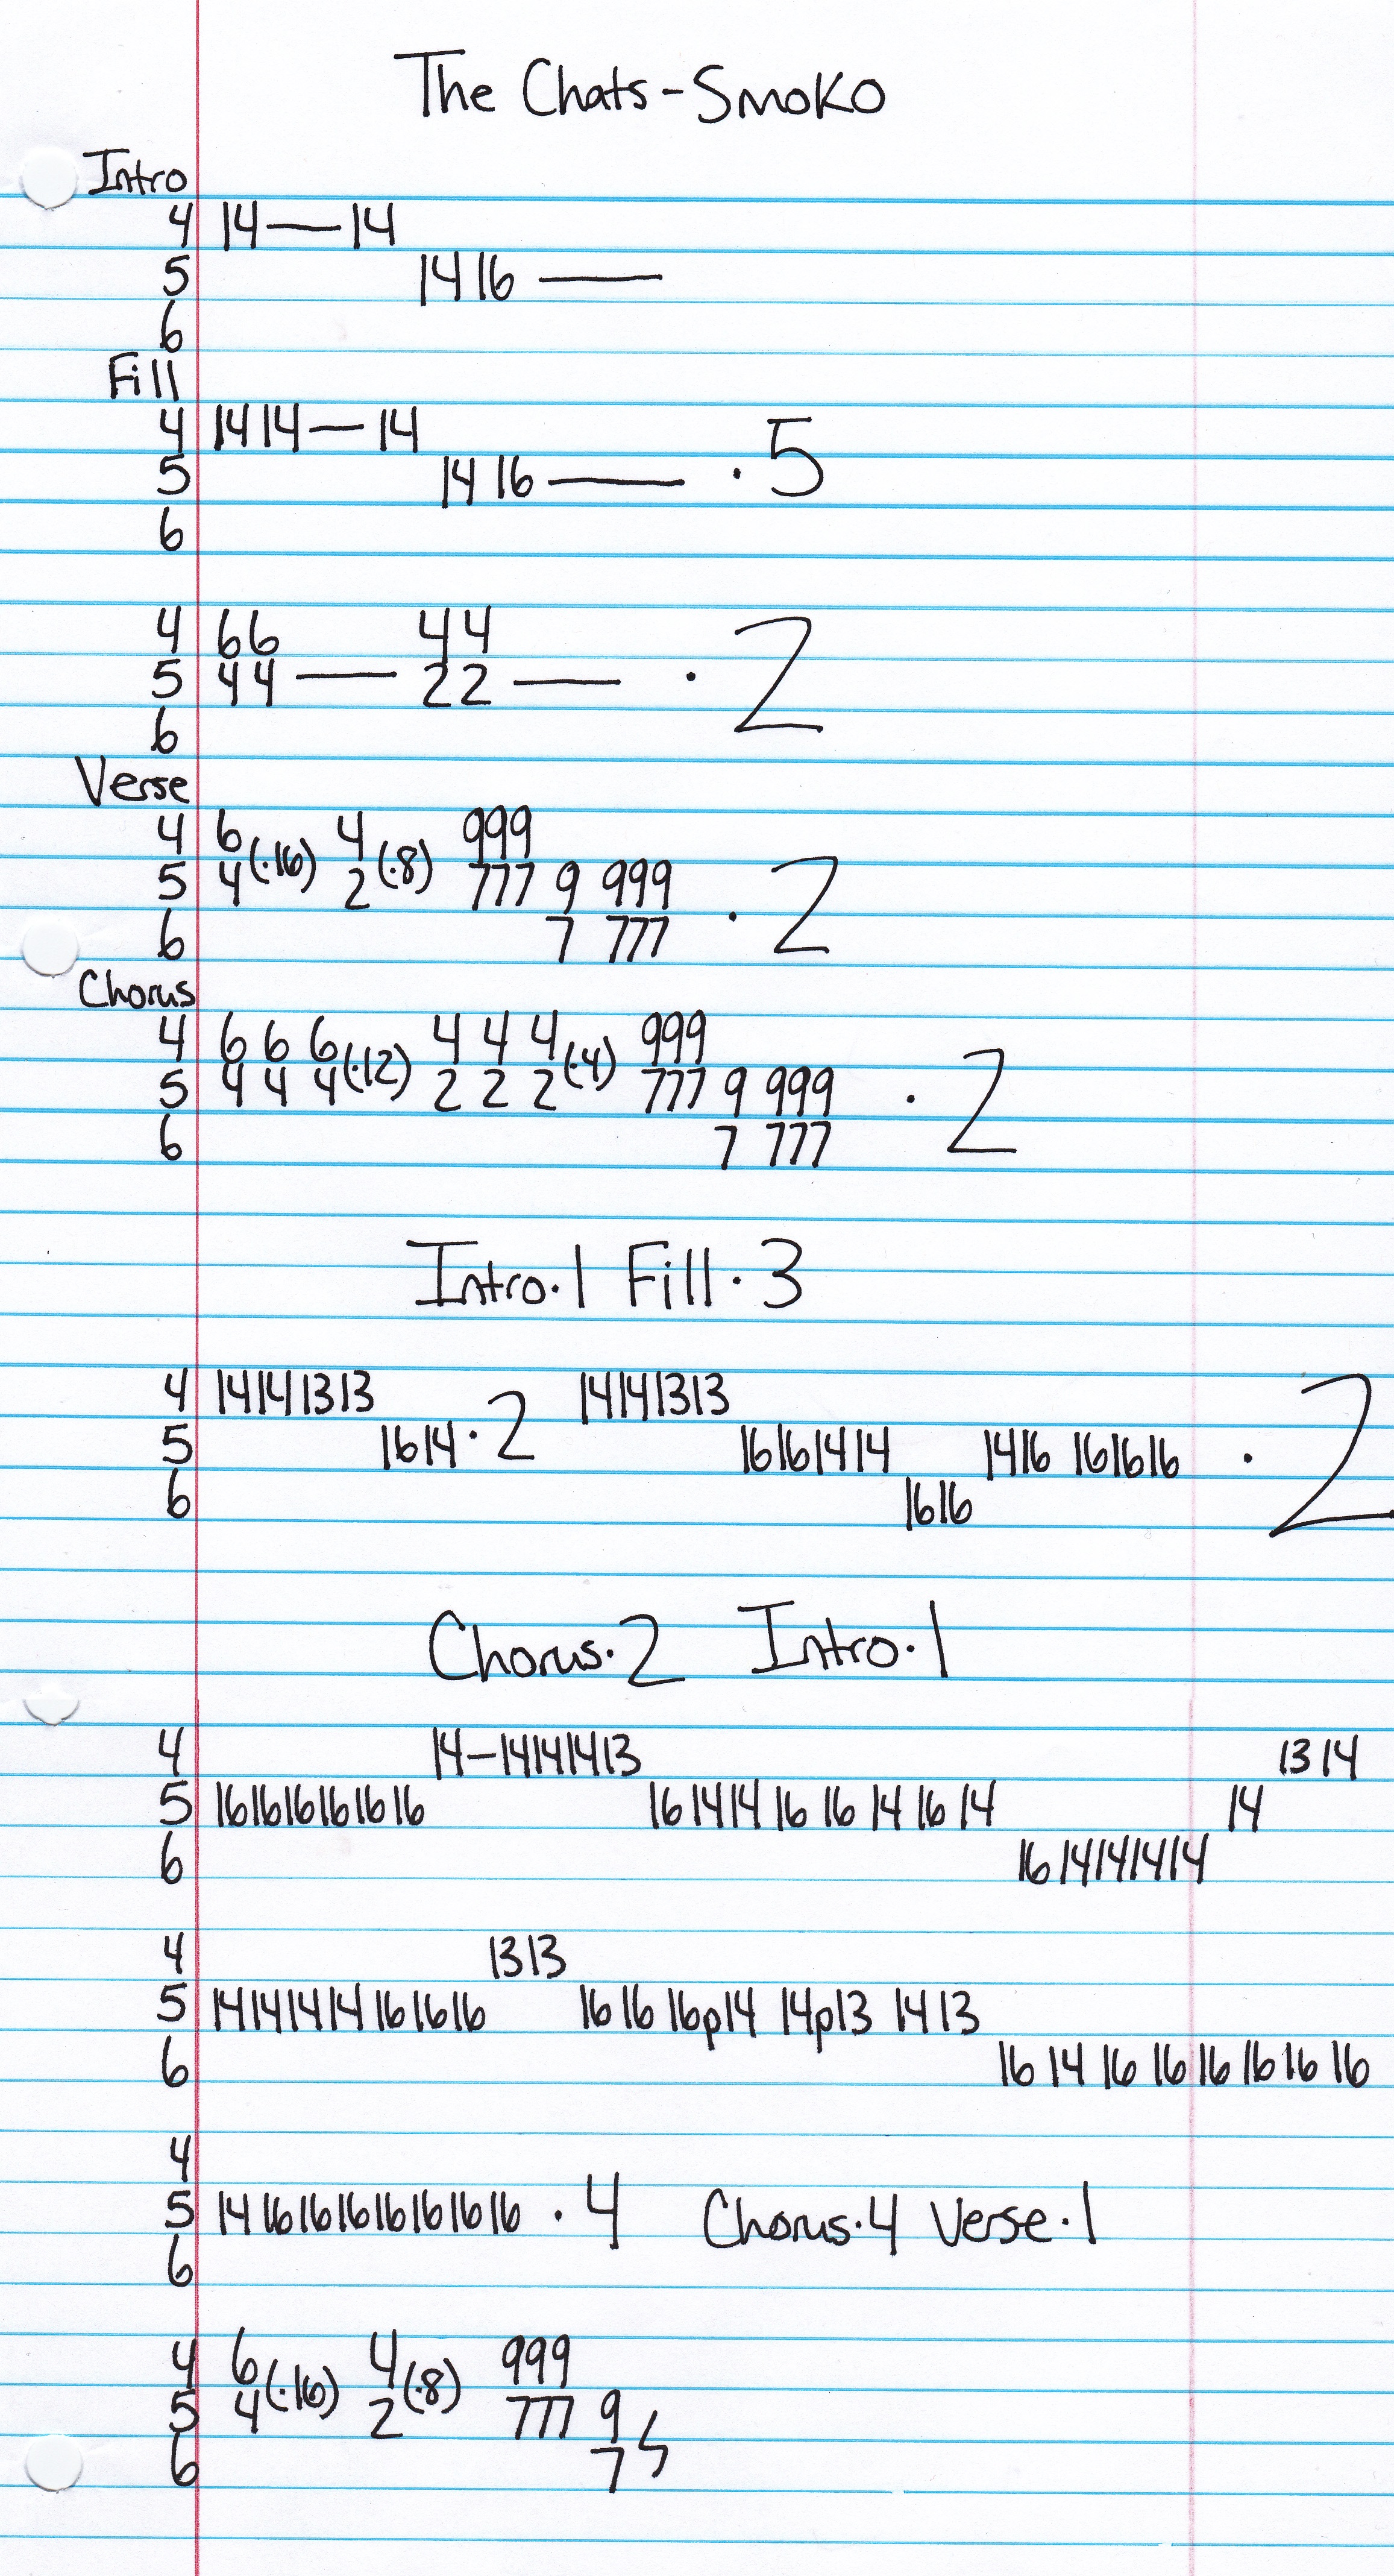 The Chats - Smoko
Intro
4 14 — 14
5 14 16 —
6
Fill
4 14 14 — 14
5 14 16 — · 5
6
4 66 44
5 44 — 22 — · 2
6
Verse
4 6 (·16) 4 (·8) 999
5 4 2 777 9 999 · 2
6 7 777
Chorus
4 6 6 6 (·12) 4 4 4 (·4) 999
5 4 4 4 2 2 2 777 9 999 · 2
6 7 777
Intro·1 Fill·3
4 14141313 14141313
5 1614·2 16161414 1416 161616 · 2
6 1616
Chorus·2 Intro·1
4 14–14141413 13 14
5 161616161616 16 1414 16 16 14 16 14 14
6 16 14141414
4 1313
5 14141414 161616 16 16 16p14 14p13 14 13
6 16 14 16 16 16 16 16 16
4
5 14 16161616161616 · 4 Chorus·4 Verse·1
6
4 6 (·16) 4 (·8) 999
5 4 2 777 9
6 7